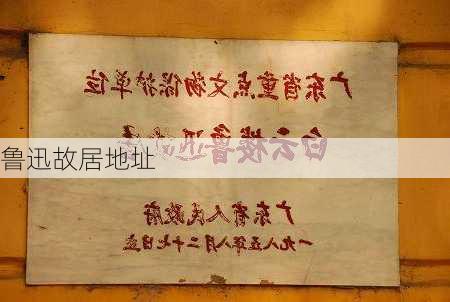 广东省重点文物保护单位
白云楼鲁迅故居
鲁迅故居地址
广东省人民政府
一九八五年八月二十七日立